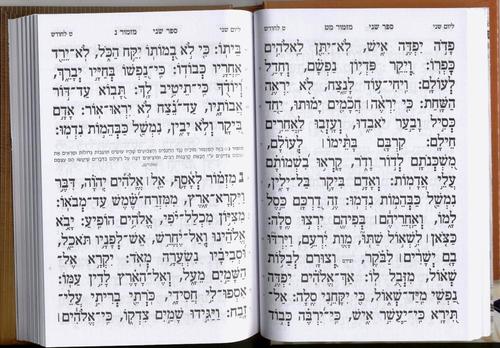 ליום שני ספר שני מזמור מט ט לחודש
פָדֹה יִפְדֶּה אִישׁ, לֹא־יִתֵּן לֵאלֹהִים
כָּפְרוֹ: וְיֵקַר פִּדְיוֹן נַפְשָׁם, וְחָדַל
לְעוֹלָם: וִיחִי־עוֹד לָנֶצַח, לֹא יִרְאֶה
הַשָּׁחַת: כִּי יִרְאֶה | חֲכָמִים יָמוּתוּ, יַחַד
כְּסִיל וָבַעַר יֹאבֵדוּ, וְעָזְבוּ לַאֲחֵרִים
חֵילָם: קִרְבָּם בָּתֵּימוֹ | לְעוֹלָם,
מִשְׁכְּנֹתָם לְדוֹר וָדֹר, קָרְאוּ בִשְׁמוֹתָם
עֲלֵי אֲדָמוֹת: וְאָדָם בִּיקָר בַּל־יָלִין,
נִמְשַׁל כַּבְּהֵמוֹת נִדְמוּ: זֶה דַרְכָּם כֵּסֶל
לָמוֹ, וְאַחֲרֵיהֶם | בְּפִיהֶם יִרְצוּ סֶלָה:
כַּצֹּאן | לִשְׁאוֹל שַׁתּוּ, מָוֶת יִרְעֵם, וַיִּרְדּוּ
בָם יְשָׁרִים | לַבֹּקֶר, וְצוּרָם לְבַלּוֹת
שְׁאוֹל, מִזְּבֻל לוֹ: אַךְ־אֱלֹהִים יִפְדֶּה
נַפְשִׁי מִיַּד־שְׁאוֹל, כִּי יִקָּחֵנִי סֶלָה: אַל־
תִּירָא כִּי־יַעֲשִׁר אִישׁ, כִּי־יִרְבֶּה כְּבוֹד
ליום שני ספר שני מזמור נ ט לחודש
בֵּיתוֹ: כִּי לֹא בְמוֹתוֹ יִקַּח הַכֹּל, לֹא־יֵרֵד
אַחֲרָיו כְּבוֹדוֹ: כִּי־נַפְשׁוֹ בְּחַיָּיו יְבָרֵךְ,
וְיוֹדֻךָ כִּי־תֵיטִיב לָךְ: תָּבוֹא עַד־דּוֹר
אֲבוֹתָיו, עַד־נֵצַח לֹא יִרְאוּ־אוֹר: אָדָם
בִּיקָר וְלֹא יָבִין, נִמְשַׁל כַּבְּהֵמוֹת נִדְמוּ:
נ מִזְמוֹר לְאָסָף, אֵל | אֱלֹהִים יְהוָה, דִּבֶּר
וַיִּקְרָא־אָרֶץ, מִמִּזְרַח־שֶׁמֶשׁ עַד־מְבֹאוֹ:
מִצִּיּוֹן מִכְלַל־יֹפִי, אֱלֹהִים הוֹפִיעַ: יָבֹא
אֱלֹהֵינוּ וְאַל־יֶחֱרַשׁ, אֵשׁ־לְפָנָיו תֹּאכֵל,
וּסְבִיבָיו נִשְׂעֲרָה מְאֹד: יִקְרָא אֶל־
הַשָּׁמַיִם מֵעָל, וְאֶל־הָאָרֶץ לָדִין עַמּוֹ:
אִסְפוּ־לִי חֲסִידָי, כֹּרְתֵי בְרִיתִי עֲלֵי־
זָבַח: וַיַּגִּידוּ שָׁמַיִם צִדְקוֹ, כִּי־אֱלֹהִים |